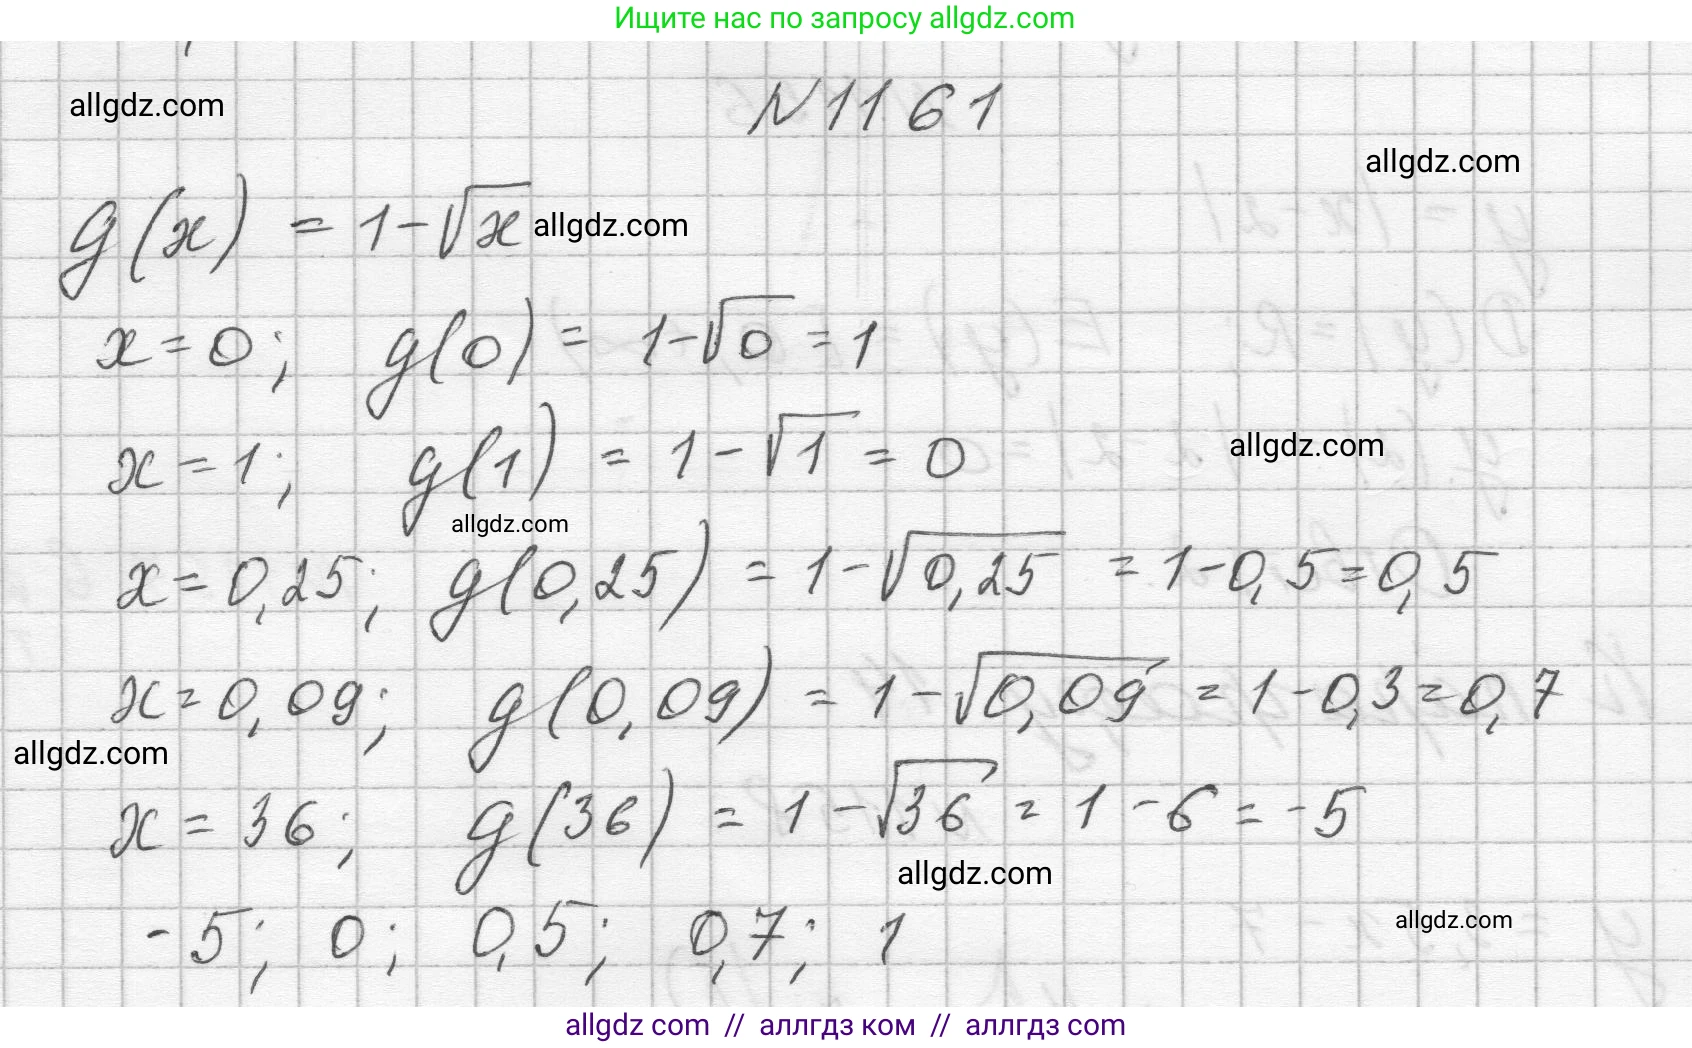 Ищите нас по запросу allgdz.com
allgdz.com
N 1161
allgdz.com
g(x) = 1-√x
allgdz.com
x=0; g(0) = 1-√0 = 1
x=1; g(1) = 1-√1 = 0
allgdz.com
allgdz.com
x=0,25; g(0,25) = 1-√0,25 = 1-0,5=0,5
x=0,09; g(0,09) = 1-√0,09 = 1-0,3=0,7
allgdz.com
x=36; g(36) = 1-√36 = 1-6=-5
allgdz.com
-5; 0; 0,5; 0,7; 1
allgdz.com
allgdz com // аллгдз ком // аллгдз com